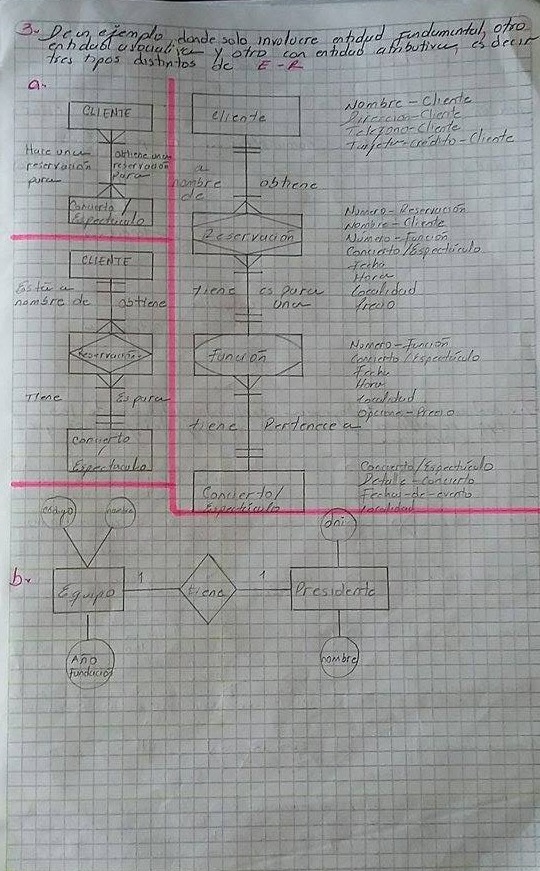 3. De un ejemplo, donde solo involucre entidad fundamental, otro
entidad asociativa y otro con entidad atributiva, es decir
tres tipos distintos de E-R
a.
CLIENTE
Hace una
reservación
para
obtiene una
reservación
para
Concierto /
Espectaculo
CLIENTE
Está a
nombre de
obtiene
Reservación
Tiene
Es para
Concierto
/
Espectaculo
Cliente
a
nombre
de
obtiene
Reservación
tiene
es para
una
Función
tiene
Pertenece a
Concierto/
Espectáculo
Nombre-Cliente
Dirección-Cliente
Teléfono-Cliente
Tarjeta-crédito-Cliente
Numero-Reservación
Nombre-Cliente
Numero-Función
Concierto/Espectáculo
Fecha
Hora
Localidad
Precio
Numero-Función
Concierto/Espectáculo
Fecha
Hora
Localidad
Opcione-Precio
Concierto/Espectáculo
Detalle-Concierto
Fechas-de-evento
Localidad
b.
codigo
nombre
Equipo
1
tiene
1
Presidente
dni
Año
fundación
nombre